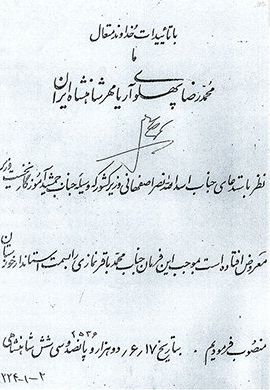 با تأئیدات خداوند متعال
ما
محمد رضا پهلوی آریامهر شاهنشاه ایران
نظر باستدعای جناب اسدالله نصر اصفهانی وزیر کشور که وسیله جناب جمشید آموزگار نخست وزیر
معروض افتاده است بموجب این فرمان جناب محمد باقر نمازی را بسمت استاندار خوزستان
منصوب فرمودیم . بتاریخ ۱۷ ر ۶ ر دو هزار و پانصد و سی و شش شاهنشاهی
۲۵۳۶
۲۲۴-۱-۲